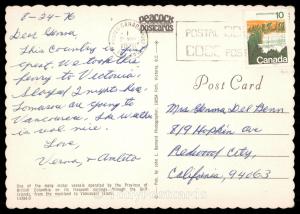 8-24-76
Dear Genna,
This country is just
great. We took the
ferry to Victoria.
Stayed 2 nights &
Tomorrow are going to
Vancouver. The weather
is real nice.
Love,
Verna, & Anlito
Peacock
Postcards
CANADA
POSTAL
CODE POST
10
Canada
Post Card
Mrs Genna Del Benn
819 Hopkin Ave
Redwood City,
California, 94063
One of the many motor vessels operated by the Province of
British Columbia on its frequent sailings through the Gulf
Islands, from the mainland to Vancouver Island.